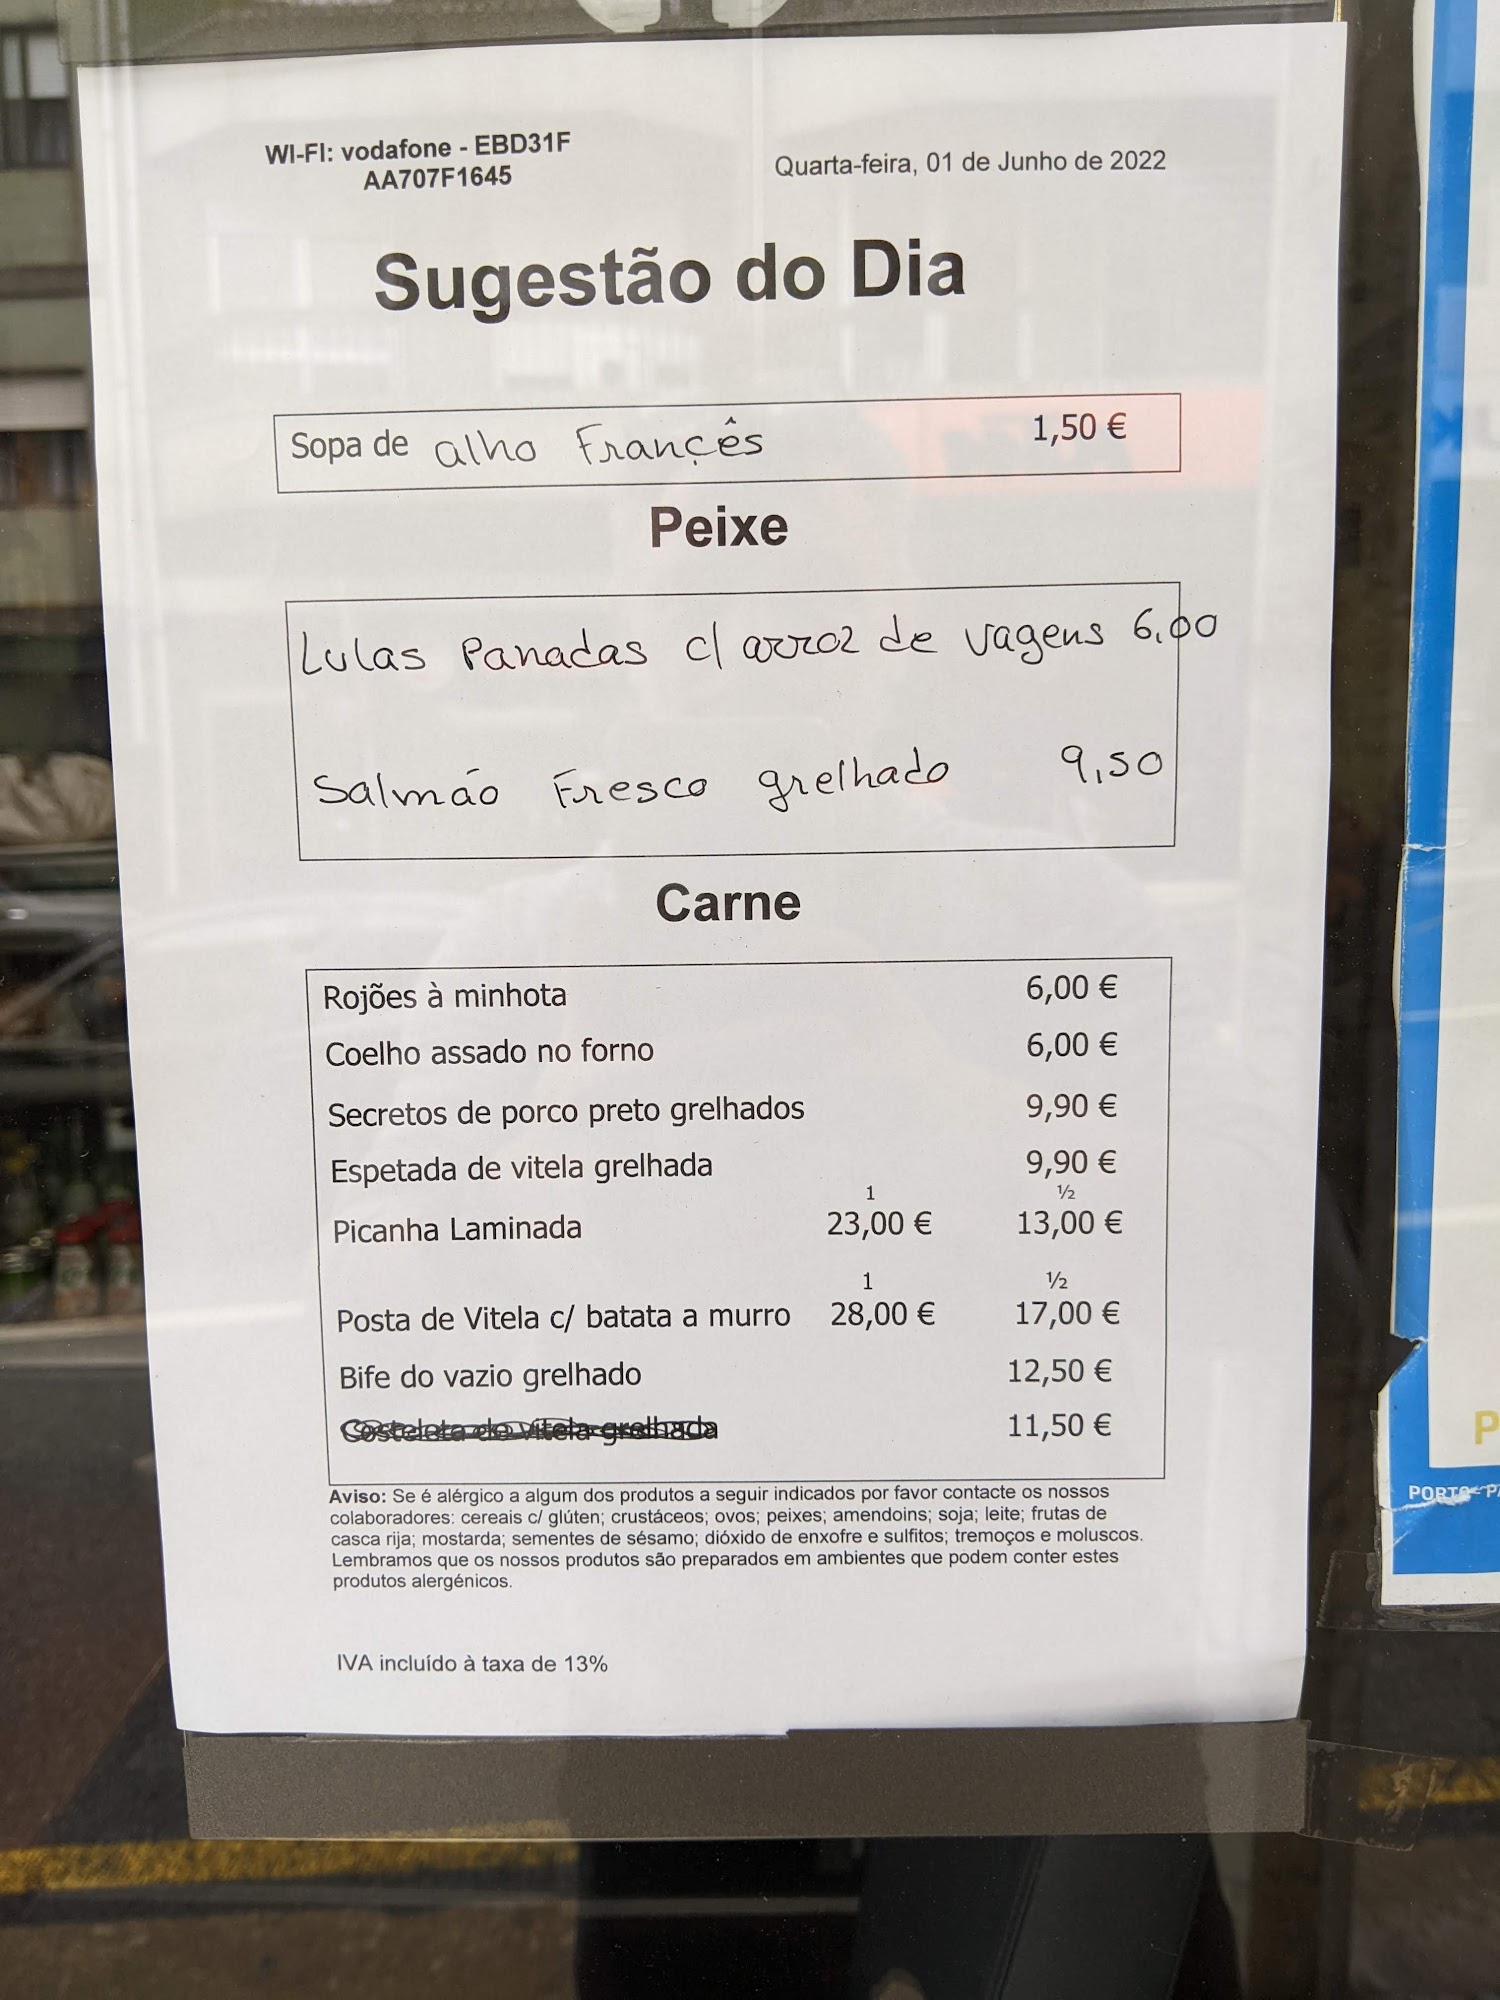 WI-FI: vodafone - EBD31F
AA707F1645
Quarta-feira, 01 de Junho de 2022
Sugestão do Dia
Sopa de alho Françês 1,50 €
Peixe
Lulas Panadas c/ arroz de vagens 6,00
Salmão Fresco grelhado 9,50
Carne
Rojões à minhota 6,00 €
Coelho assado no forno 6,00 €
Secretos de porco preto grelhados 9,90 €
Espetada de vitela grelhada 9,90 €
1 ½
Picanha Laminada 23,00 € 13,00 €
1 ½
Posta de Vitela c/ batata a murro 28,00 € 17,00 €
Bife do vazio grelhado 12,50 €
Costeleta de vitela grelhada 11,50 €
Aviso: Se é alérgico a algum dos produtos a seguir indicados por favor contacte os nossos
colaboradores: cereais c/ glúten; crustáceos; ovos; peixes; amendoins; soja; leite; frutas de
casca rija; mostarda; sementes de sésamo; dióxido de enxofre e sulfitos; tremoços e moluscos.
Lembramos que os nossos produtos são preparados em ambientes que podem conter estes
produtos alergénicos.
IVA incluído à taxa de 13%
P
PORTO